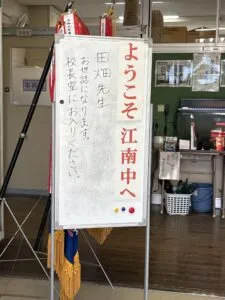 ようこそ 江南中へ
田畑 先生
お世話になります。
校長室にお入りください。